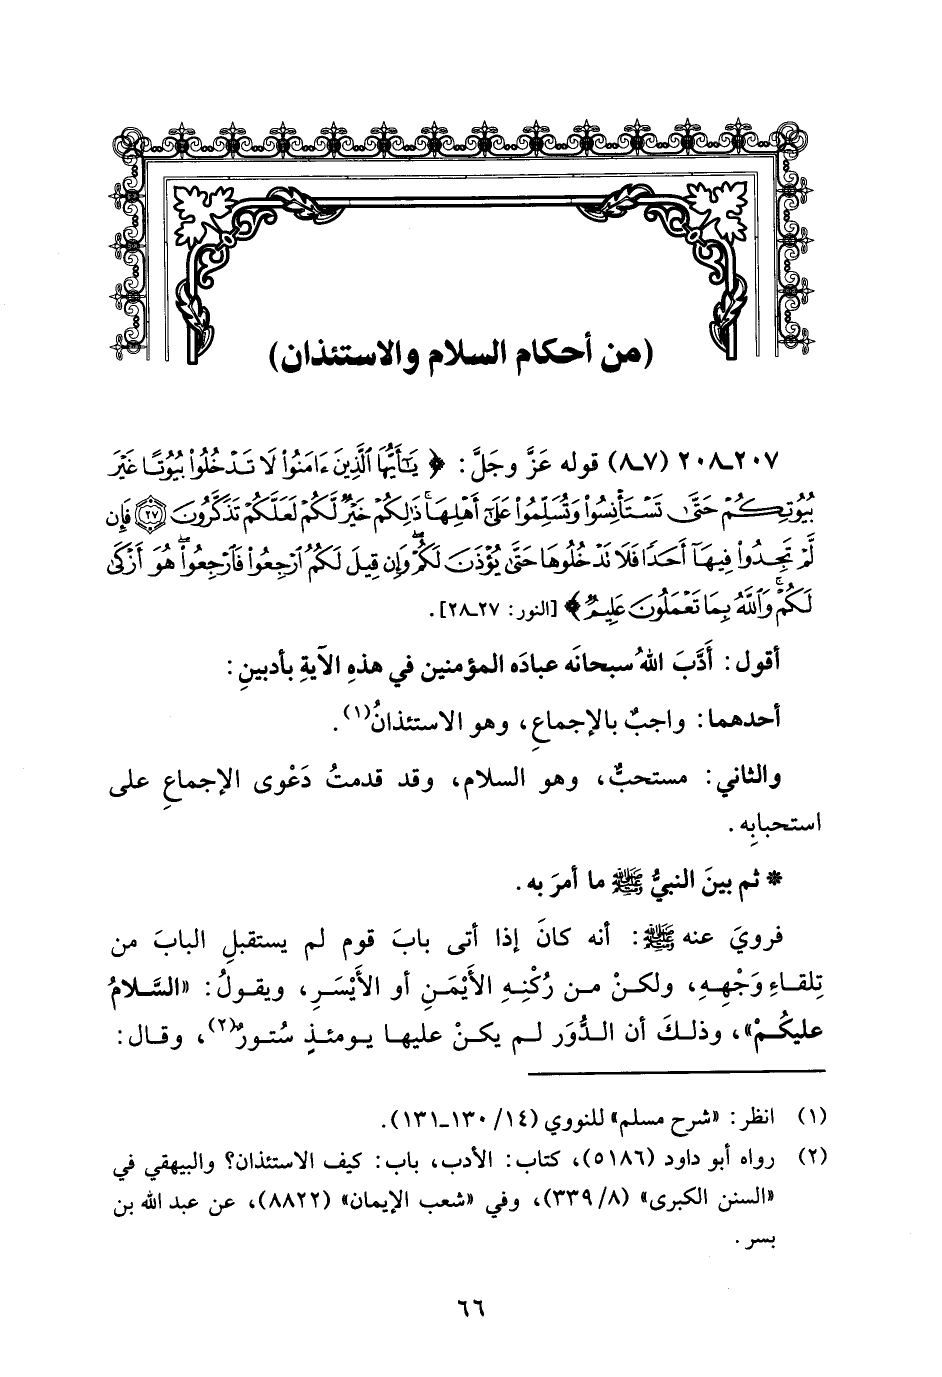 (من أحكام السلام والاستئذان)
٢٠٧ـ٢٠٨ (٧ـ٨) قوله عَزَّ وجَلَّ: ﴿ يَٰٓأَيُّهَا ٱلَّذِينَ ءَامَنُوا۟ لَا تَدْخُلُوا۟ بُيُوتًا غَيْرَ
بُيُوتِكُمْ حَتَّىٰ تَسْتَأْنِسُوا۟ وَتُسَلِّمُوا۟ عَلَىٰٓ أَهْلِهَا ۚ ذَٰلِكُمْ خَيْرٌ لَّكُمْ لَعَلَّكُمْ تَذَكَّرُونَ ۝٢٧ فَإِن
لَّمْ تَجِدُوا۟ فِيهَآ أَحَدًا فَلَا تَدْخُلُوهَا حَتَّىٰ يُؤْذَنَ لَكُمْ ۖ وَإِن قِيلَ لَكُمُ ٱرْجِعُوا۟ فَٱرْجِعُوا۟ ۖ هُوَ أَزْكَىٰ
لَكُمْ ۚ وَٱللَّهُ بِمَا تَعْمَلُونَ عَلِيمٌ ﴾ [النور: ٢٧ـ٢٨].
أقول: أَدَّبَ اللهُ سبحانَه عبادَه المؤمنين في هذهِ الآيةِ بأدبينِ:
أحدهما: واجبٌ بالإجماعِ، وهو الاستئذانُ(١).
والثاني: مستحبٌّ، وهو السلام، وقد قدمتُ دَعْوى الإجماعِ على
استحبابِه.
* ثم بينَ النبيُّ ﷺ ما أمرَ به.
فرويَ عنه ﷺ: أنه كانَ إذا أتى بابَ قوم لم يستقبلِ البابَ من
تِلقاءِ وَجْهِهِ، ولكنْ من رُكْنِهِ الأَيْمَنِ أو الأَيْسَرِ، ويقولُ: «السَّلامُ
عليكُمْ»، وذلكَ أن الدُّوَر لم يكنْ عليها يومئذٍ سُتورٌ(٢)، وقال:
(١) انظر: «شرح مسلم» للنووي (١٤/ ١٣٠ـ١٣١).
(٢) رواه أبو داود (٥١٨٦)، كتاب: الأدب، باب: كيف الاستئذان؟ والبيهقي في
«السنن الكبرى» (٨/ ٣٣٩)، وفي «شعب الإيمان» (٨٨٢٢)، عن عبد الله بن
بسر.
٦٦